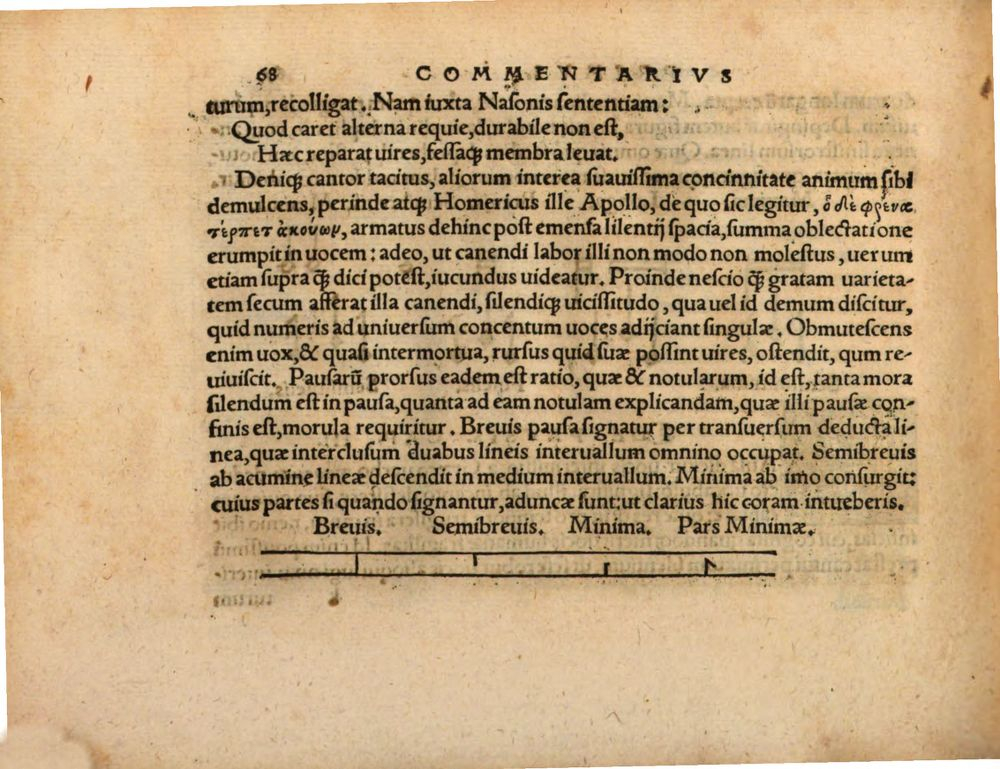 68 COMMENTARIVS
turum,recolligat. Nam iuxta Nasonis sententiam:
Quod caret alterna requie,durabile non est,
Hæc reparat uires,fessaq́ue membra leuat.
Deniq́ue cantor tacitus, aliorum interea suauissima concinnitate animum sibi
demulcens, perinde atq́ue Homericus ille Apollo, de quo sic legitur, ὁ δὲ φρένα
τέρπετ ἀκούων, armatus dehinc post emensa silentij spacia, summa oblectatione
erumpit in uocem: adeo, ut canendi labor illi non modo non molestus, uerum
etiam supra q̈ dici potest, iucundus uideatur. Proinde nescio q̈ gratam varieta-
tem secum afferat illa canendi, silendiq́ue uicissitudo, qua uel id demum discitur,
quid numeris ad uniuersum concentum uoces adijciant singulæ. Obmutescens
enim uox,& quasi intermortua, rursus quid suæ possint uires, ostendit, qum re-
uiuiscit. Pausarū prorsus eadem est ratio, quæ & notularum, id est, tanta mora
silendum est in pausa,quanta ad eam notulam explicandam,quæ illi pausæ con-
finis est,morula requiritur. Breuis pausa signatur per transuersum deducta li-
nea,quæ interclusum duabus lineis interuallum omnino occupat. Semibreuis
ab acumine lineæ descendit in medium interuallum. Minima ab imo consurgit:
cuius partes si quando signantur,aduncæ sunt:ut clarius hic coram intueberis.
Breuis. Semibreuis. Minima. Pars Minimæ.